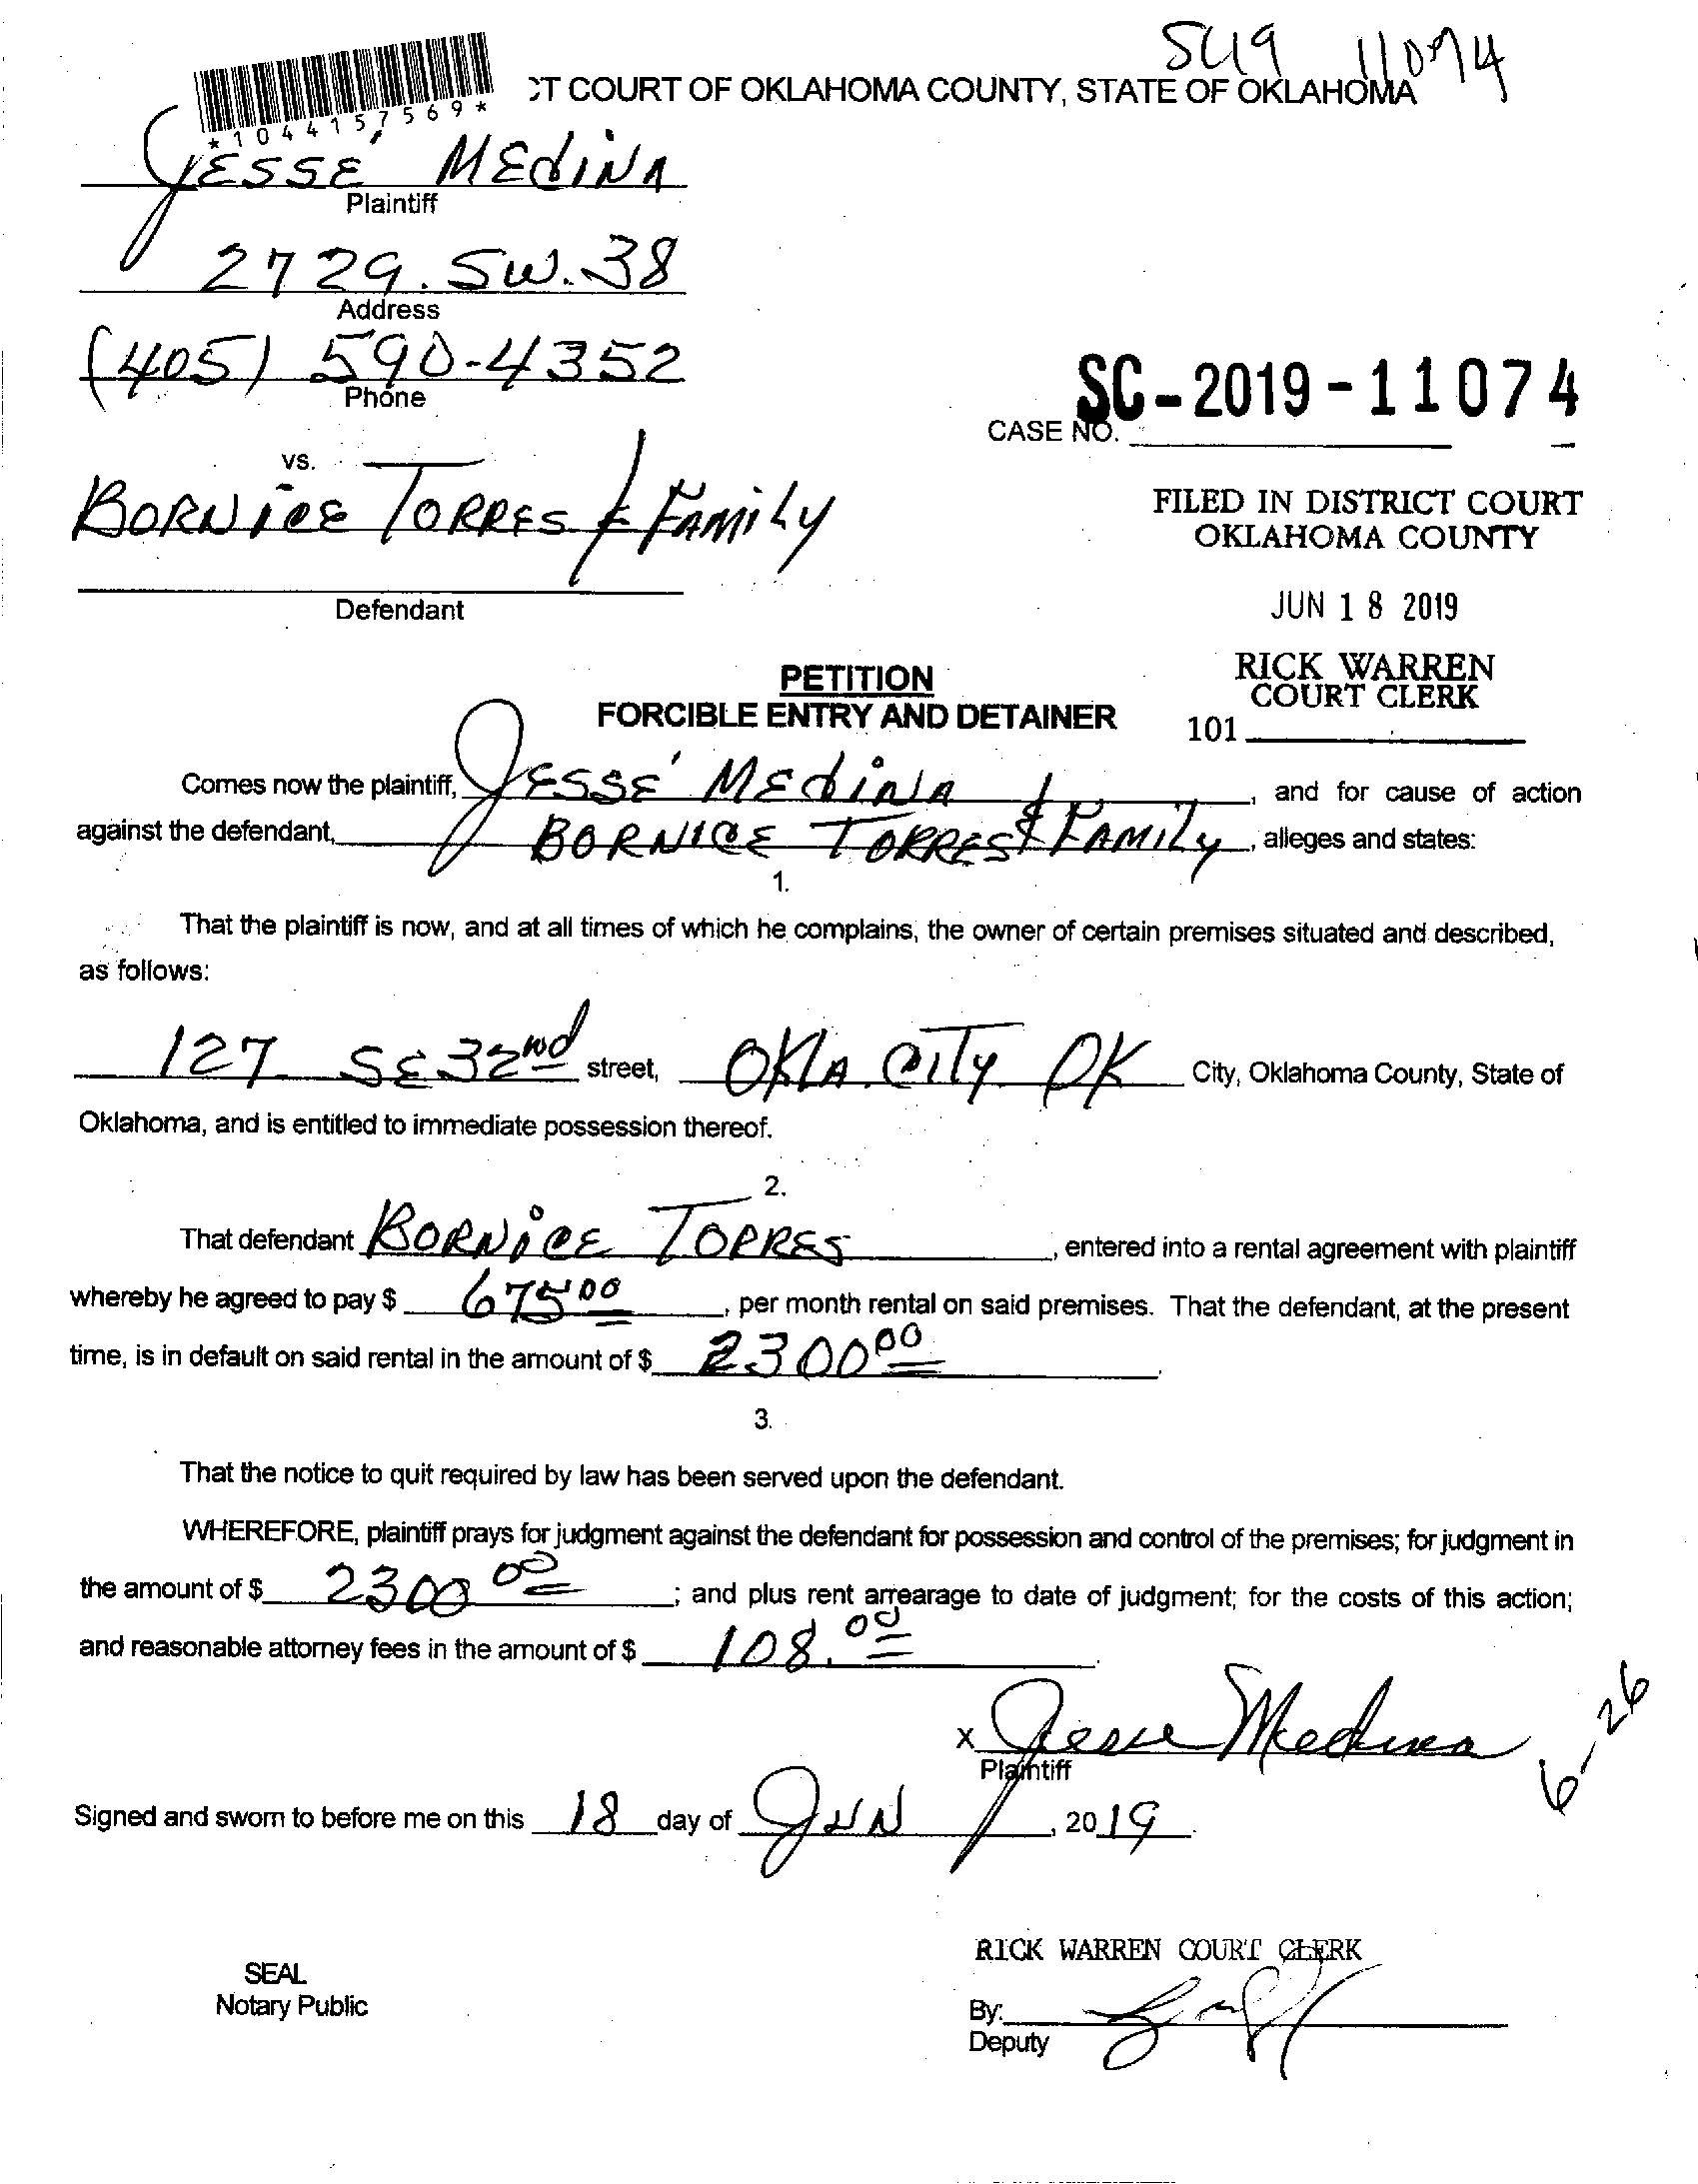 SC19 11074
CT COURT OF OKLAHOMA COUNTY, STATE OF OKLAHOMA
*1044157569*
JESSE MEDINA
Plaintiff
2729. SW. 38
Address
(405) 590-4352
Phone
SC-2019-11074
CASE NO.
vs.
BORNICE TORRES & FAMILY
Defendant
FILED IN DISTRICT COURT
OKLAHOMA COUNTY
JUN 18 2019
RICK WARREN
COURT CLERK
101
PETITION
FORCIBLE ENTRY AND DETAINER
Comes now the plaintiff, JESSE MEDINA, and for cause of action
against the defendant, BORNICE TORRES & FAMILY, alleges and states:
1.
That the plaintiff is now, and at all times of which he complains, the owner of certain premises situated and described,
as follows:
127 SE 32nd street, OKLA. CITY OK City, Oklahoma County, State of
Oklahoma, and is entitled to immediate possession thereof.
2.
That defendant BORNICE TORRES, entered into a rental agreement with plaintiff
whereby he agreed to pay $ 675 00, per month rental on said premises. That the defendant, at the present
time, is in default on said rental in the amount of $ 2300 00.
3.
That the notice to quit required by law has been served upon the defendant.
WHEREFORE, plaintiff prays for judgment against the defendant for possession and control of the premises; for judgment in
the amount of $ 2300 00; and plus rent arrearage to date of judgment; for the costs of this action;
and reasonable attorney fees in the amount of $ 108.00.
x Jesse Medina
Plaintiff
6-26
Signed and sworn to before me on this 18 day of JUN, 2019.
RICK WARREN COURT CLERK
SEAL
Notary Public
By:
Deputy